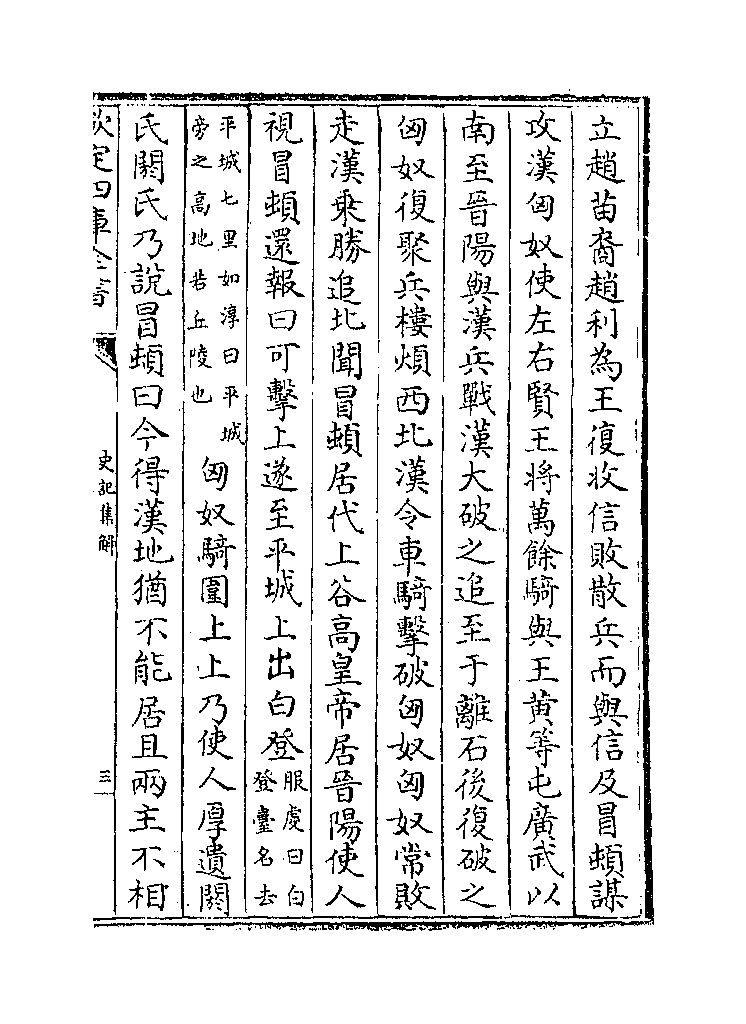 立趙苗裔趙利為王復收信敗散兵而與信及冒頓謀
攻漢匈奴使左右賢王將萬餘騎與王黄等屯廣武以
南至晉陽與漢兵戰漢大破之追至于離石後復破之
匈奴復聚兵樓煩西北漢令車騎擊破匈奴匈奴常敗
走漢乗勝追北聞冒頓居代上谷高皇帝居晉陽使人
視冒頓還報曰可擊上遂至平城上出白登
服虔曰白
登臺名去
平城七里如淳曰平城
旁之高地若丘陵也
匈奴騎圍上上乃使人厚遺閼
氏閼氏乃說冒頓曰今得漢地猶不能居且兩主不相
欽定四庫全書
史記集解
三